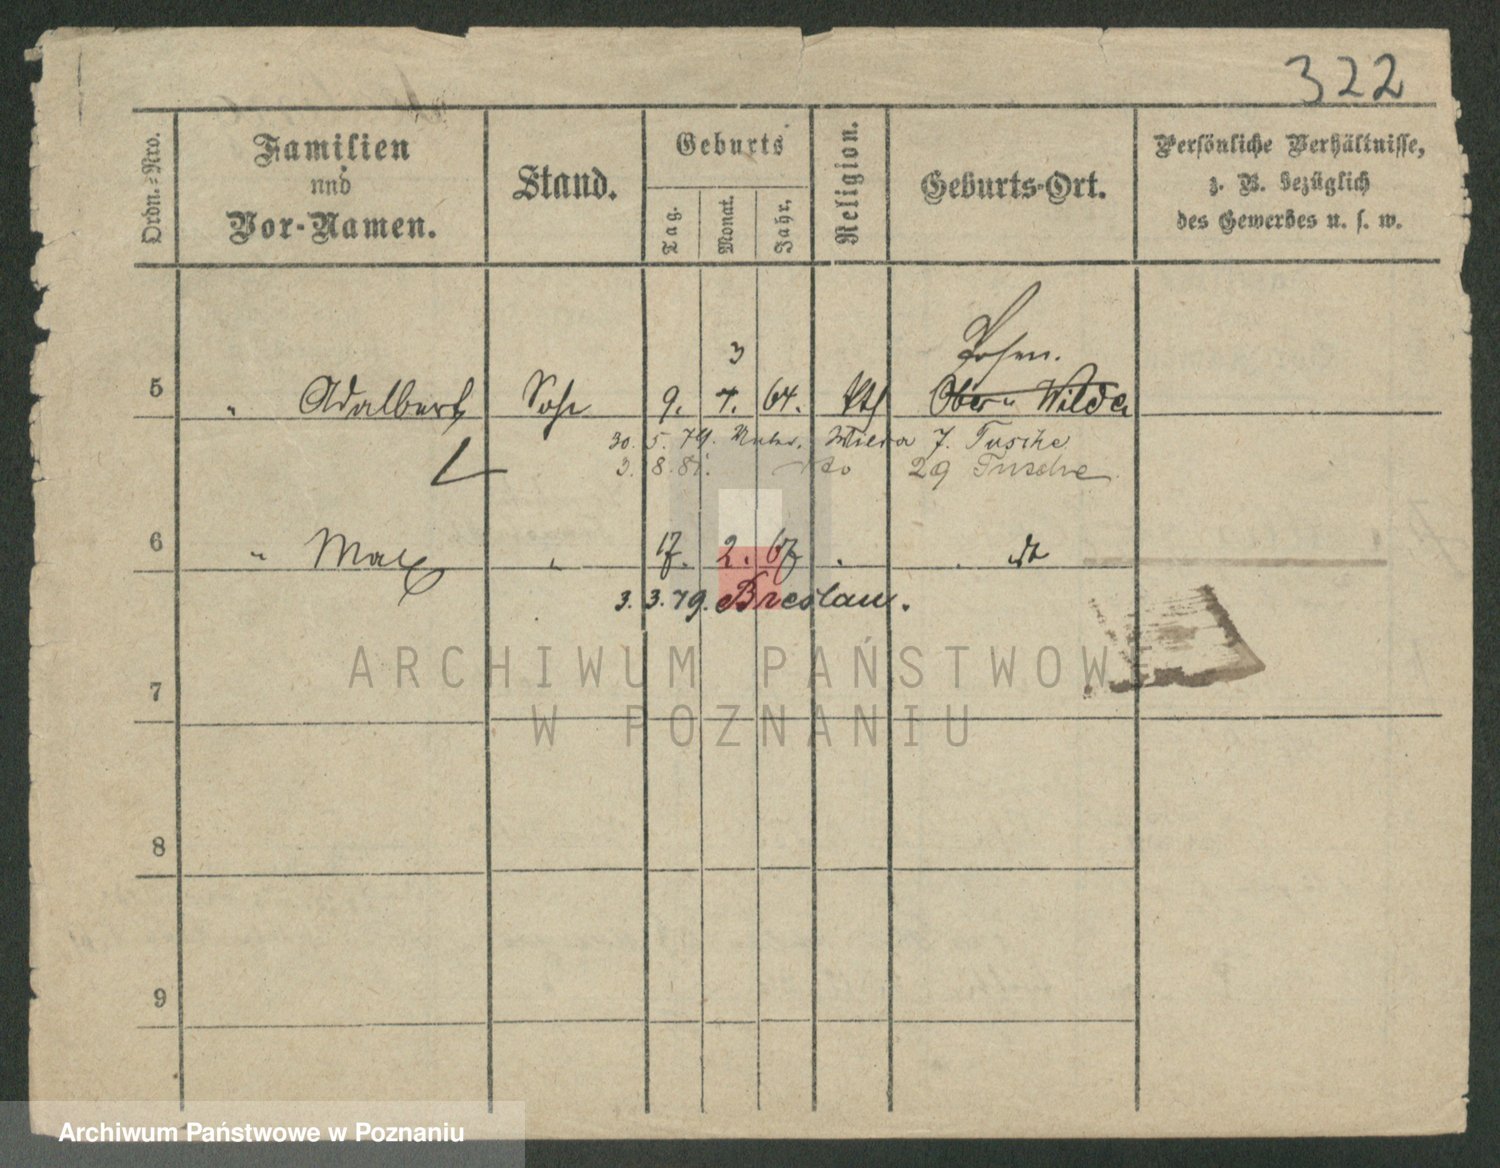 322
Ordn.-Nro.
Familien
und
Vor-Namen.
Stand.
Geburts
Tag.
Monat.
Jahr.
Religion.
Geburts-Ort.
Persönliche Verhältnisse,
z. B. bezüglich
des Gewerbes u. s. w.
3 Posen.
5 " Adalbert Sohn 9. 7. 64. kth Ober Wilda
30. 5. 79. Unter Wilda 7. Tusche
3. 8. 81. dto 29 Tusche
6 " Max " 17. 2. 67 . . dto
3. 3. 79. Breslau.
ARCHIWUM PAŃSTWOWE
7
W POZNANIU
8
9
Archiwum Państwowe w Poznaniu